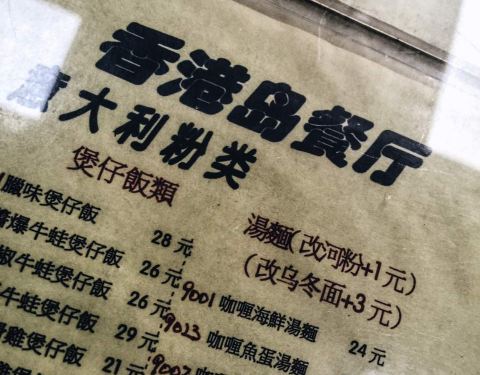 香港岛餐厅
意大利粉类
煲仔飯類
臘味煲仔飯 28元
爆牛蛙煲仔飯 26元
椒牛蛙煲仔飯 26元
牛蛙煲仔飯 29元
雞煲仔飯 21元
煲仔飯
湯麵(改河粉+1元)
(改乌冬面+3元)
9001 咖喱海鮮湯麵 24元
9023 咖喱魚蛋湯麵
9002 咖喱